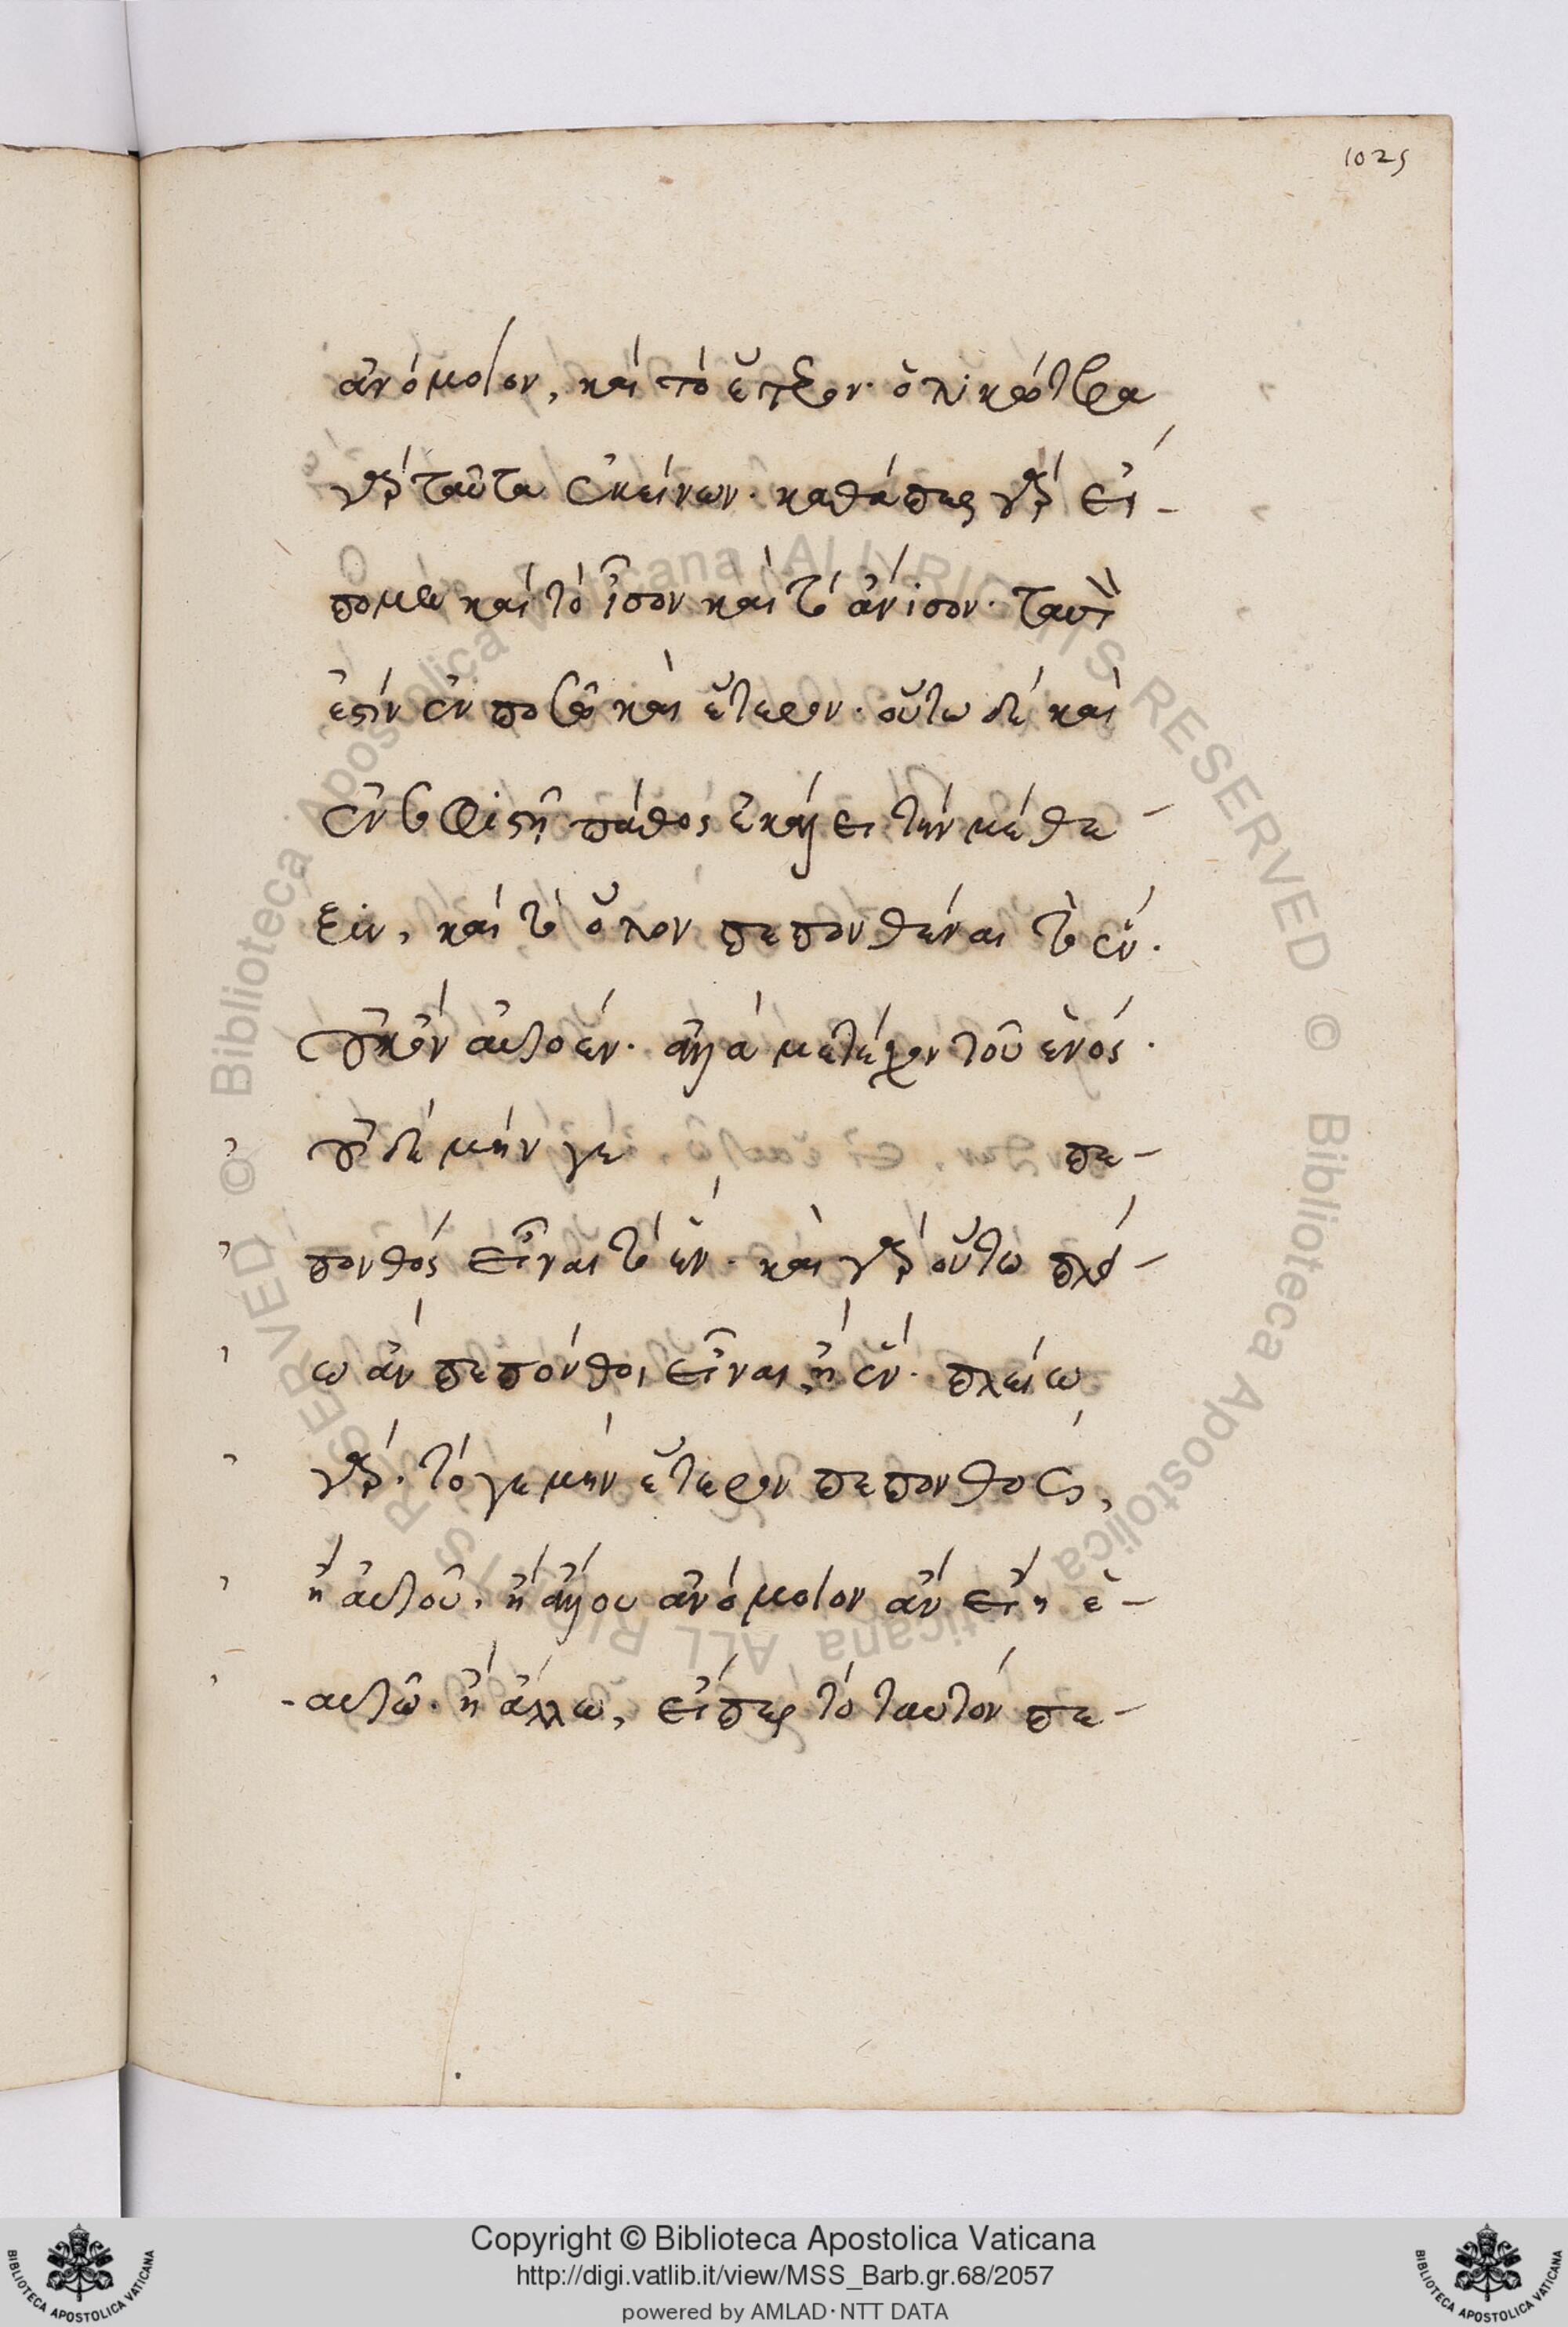 1025
ἀνόμοιον, καὶ τὸ ἕτερον· ὁλικώτερα
γὰρ ταῦτα ἐκείνων· καθάπερ γὰρ εἴ-
πομεν καὶ τὸ ἴσον καὶ τὸ ἄνισον· ταυτὸν
ἐστὶν ἐν ποσῷ καὶ ἕτερον· οὕτω δὴ καὶ
πάθος ἐκάλει τὴν μέθε-
ξιν, καὶ τὸ ὅλον πεπονθέναι τὸ ἕν·
οὐκ ὂν αὐτοέν· ἀλλὰ μετέχον τοῦ ἑνός·
οὐδὲ μήν γε πε-
πονθὸς εἶναι τὸ ἕν· καὶ γὰρ οὕτω πλεί-
ω ἂν πεπόνθοι εἶναι ἢ ἕν· πλείω
γὰρ· τό γε μὴν ἕτερον πεπονθὸς,
ἢ αὐτοῦ, ἢ ἄλλου ἀνόμοιον ἂν εἴη ἑ-
-αυτῷ· ἢ ἄλλω, εἴπερ τὸ ταυτὸν πε-
Copyright © Biblioteca Apostolica Vaticana
http://digi.vatlib.it/view/MSS_Barb.gr.68/2057
powered by AMLAD·NTT DATA
BIBLIOTECA APOSTOLICA VATICANA
BIBLIOTECA APOSTOLICA VATICANA